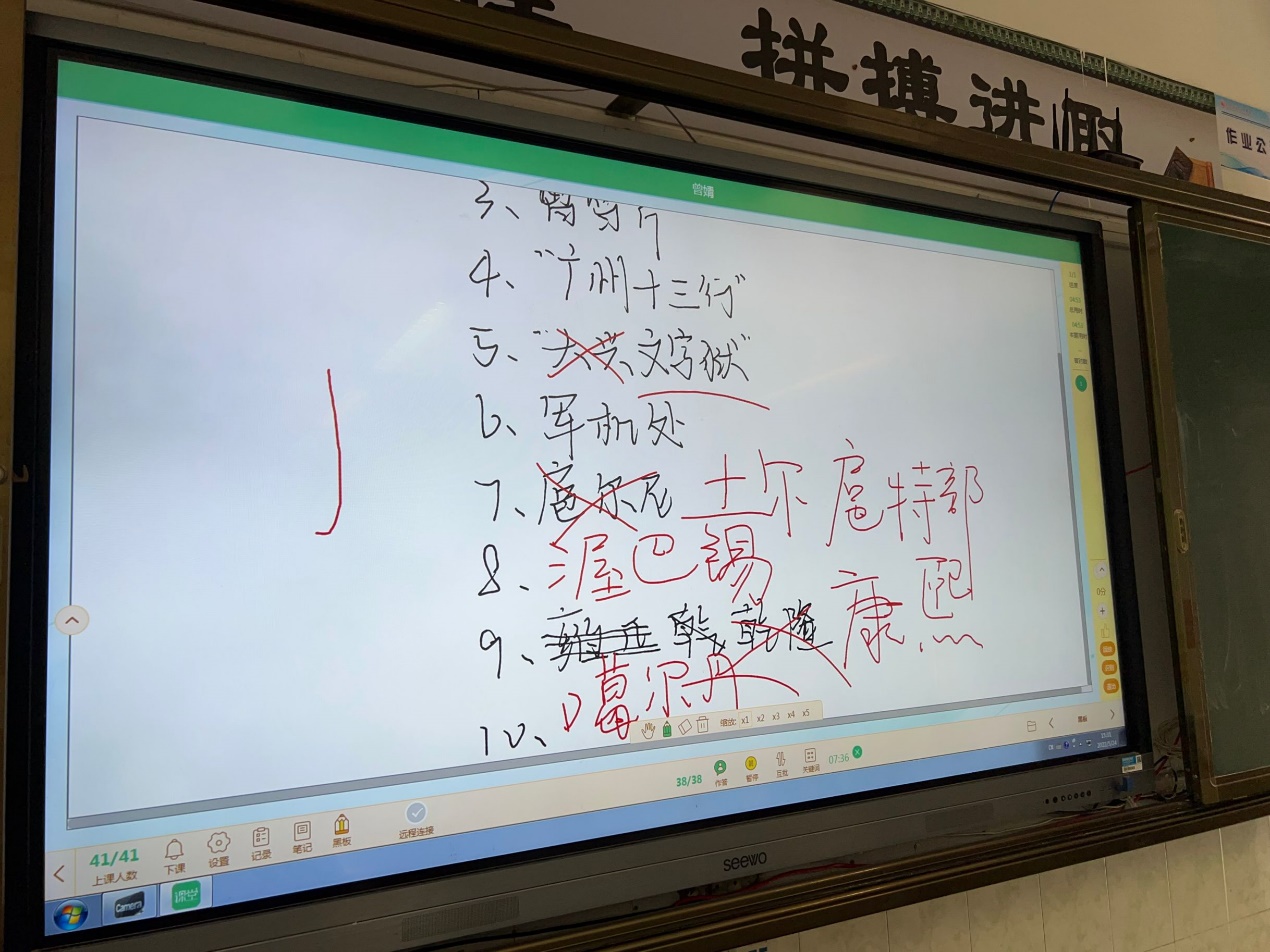 拼搏进取
作业公
曾婧
3、
4、“广州十三行”
5、“大兴文字狱”
6、军机处
7、扈尔尼 土尔扈特部
8、渥巴锡
9、雍正 乾 乾隆 康熙
10、噶尔丹
缩放: x1 x2 x3 x4 x5
0分
38/38 作答 暂停 互批 关键词 07:36
黑板
41/41
上课人数 下课 设置 记录 笔记 黑板 远程连接
Camera 课堂
seewo